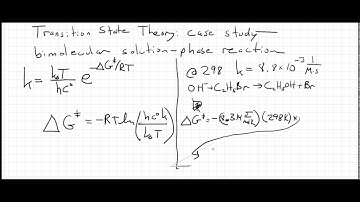 Transition State Theory: case study
bimolecular solution-phase reaction
k = k_BT/hc° e^-ΔG‡/RT
ΔG‡ = -RT ln(hc°k/k_BT)
@ 298 k = 8.8×10⁻³ 1/M·s
OH⁻ + C₂H₅Br → C₂H₅OH + Br
ΔG‡ = -(8.314 J/mol K)(298K) ×